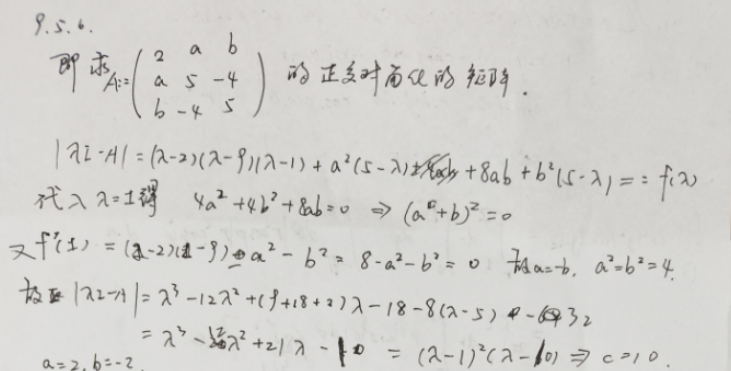 9.5.6.
即求 A:=(2 a b
a 5 -4
b -4 5) 的正交对角化的矩阵.
|λI-A| = (λ-2)(λ-9)(λ-1) + a²(5-λ) + 8ab + b²(5-λ) =: f(λ)
代入 λ=1得 4a²+4b²+8ab=0 ⇒ (a+b)²=0
又f'(1) = (1-2)(1-9) - a² - b² = 8-a²-b² = 0 故a=-b, a²=b²=4.
故 |λI-A| = λ³-12λ²+(9+18+2)λ-18-8(λ-5)-32
= λ³-12λ²+21λ-10 = (λ-1)²(λ-10) ⇒ c=10.
a=2, b=-2.